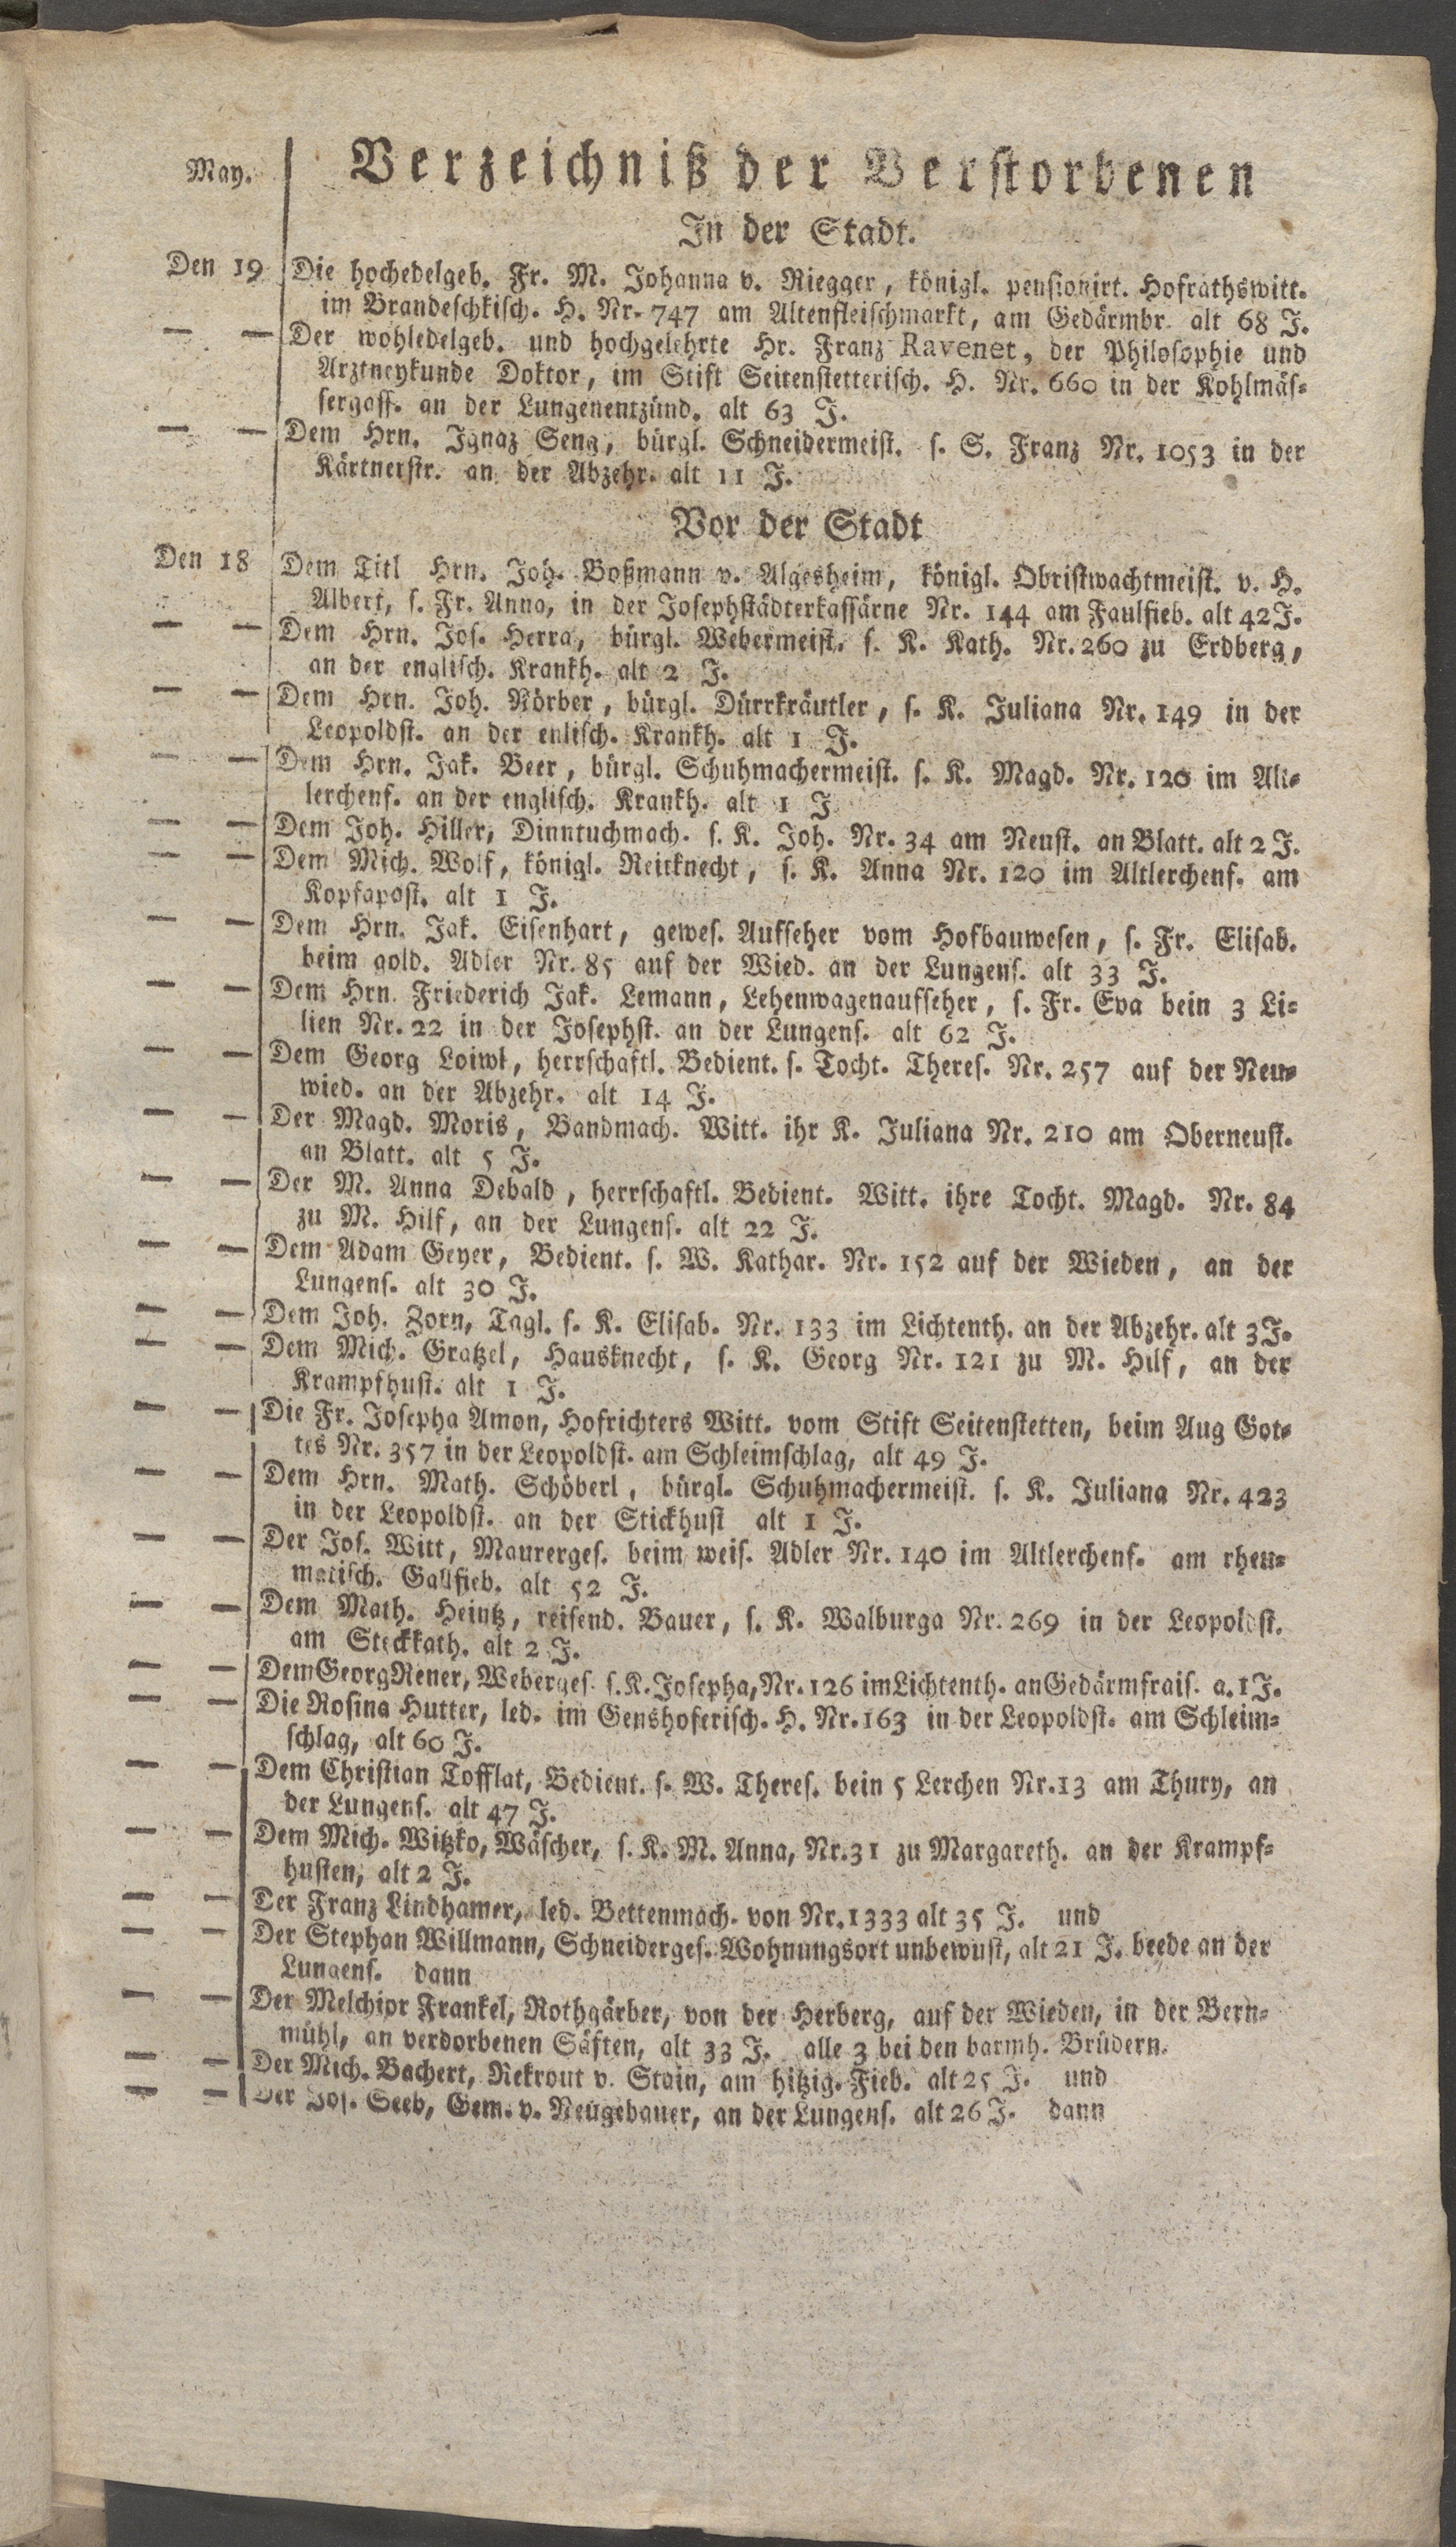 May.
Verzeichniß der Verstorbenen
In der Stadt.
Den 19 Die hochedelgeb. Fr. M. Johanna v. Riegger, königl. pensionirt. Hofrathswitt.
im Brandeschkisch. H. Nr. 747 am Altenfleischmarkt, am Gedärmbr. alt 68 J.
— — Der wohledelgeb. und hochgelehrte Hr. Franz Ravenet, der Philosophie und
Arztneykunde Doktor, im Stift Seitenstetterisch. H. Nr. 660 in der Kohlmäs-
sergass. an der Lungenentzünd. alt 63 J.
— — Dem Hrn. Ignaz Seng, bürgl. Schneidermeist. s. S. Franz Nr. 1053 in der
Kärtnerstr. an der Abzehr. alt 11 J.
Vor der Stadt
Den 18 Dem Titl Hrn. Joh. Boßmann v. Algesheim, königl. Obristwachtmeist. v. H.
Albert, s. Fr. Anna, in der Josephstädterkassärne Nr. 144 am Faulfieb. alt 42 J.
— — Dem Hrn. Jos. Herra, bürgl. Webermeist. s. K. Kath. Nr. 260 zu Erdberg,
an der englisch. Krankh. alt 2 J.
— — Dem Hrn. Joh. Nörber, bürgl. Dürrkräutler, s. K. Juliana Nr. 149 in der
Leopoldst. an der enlisch. Krankh. alt 1 J.
— — Dem Hrn. Jak. Beer, bürgl. Schuhmachermeist. s. K. Magd. Nr. 120 im Alt-
lerchenf. an der englisch. Krankh. alt 1 J
— — Dem Joh. Hiller, Dinntuchmach. s. K. Joh. Nr. 34 am Neust. an Blatt. alt 2 J.
— — Dem Mich. Wolf, königl. Reitknecht, s. K. Anna Nr. 120 im Altlerchenf. am
Kopfapost. alt 1 J.
— — Dem Hrn. Jak. Eisenhart, gewes. Aufseher vom Hofbauwesen, s. Fr. Elisab.
beim gold. Adler Nr. 85 auf der Wied. an der Lungens. alt 33 J.
— — Dem Hrn. Friederich Jak. Lemann, Lehenwagenaufseher, s. Fr. Eva bein 3 Li-
lien Nr. 22 in der Josephst. an der Lungens. alt 62 J.
— — Dem Georg Loiwl, herrschaftl. Bedient. s. Tocht. Theres. Nr. 257 auf der Neu-
wied. an der Abzehr. alt 14 J.
— — Der Magd. Moris, Bandmach. Witt. ihr K. Juliana Nr. 210 am Oberneust.
an Blatt. alt 5 J.
— — Der M. Anna Debald, herrschaftl. Bedient. Witt. ihre Tocht. Magd. Nr. 84
zu M. Hilf, an der Lungens. alt 22 J.
— — Dem Adam Geyer, Bedient. s. W. Kathar. Nr. 152 auf der Wieden, an der
Lungens. alt 30 J.
— — Dem Joh. Zorn, Tagl. s. K. Elisab. Nr. 133 im Lichtenth. an der Abzehr. alt 3 J.
— — Dem Mich. Gratzel, Hausknecht, s. K. Georg Nr. 121 zu M. Hilf, an der
Krampfhust. alt 1 J.
— — Die Fr. Josepha Amon, Hofrichters Witt. vom Stift Seitenstetten, beim Aug Got-
tes Nr. 357 in der Leopoldst. am Schleimschlag, alt 49 J.
— — Dem Hrn. Math. Schöberl, bürgl. Schuhmachermeist. s. K. Juliana Nr. 423
in der Leopoldst. an der Stickhust alt 1 J.
— — Der Jos. Witt, Maurerges. beim weis. Adler Nr. 140 im Altlerchenf. am rheu-
matisch. Gallfieb. alt 52 J.
— — Dem Math. Heintz, reisend. Bauer, s. K. Walburga Nr. 269 in der Leopoldst.
am Steckkath. alt 2 J.
— — Dem Georg Rener, Weberges. s. K. Josepha, Nr. 126 im Lichtenth. an Gedärmfrais. a. 1 J.
— — Die Rosina Hutter, led. im Genshoferisch. H. Nr. 163 in der Leopoldst. am Schleim-
schlag, alt 60 J.
— — Dem Christian Tofflat, Bedient. s. W. Theres. bein 5 Lerchen Nr. 13 am Thury, an
der Lungens. alt 47 J.
— — Dem Mich. Witzko, Wäscher, s. K. M. Anna, Nr. 31 zu Margareth. an der Krampf-
husten, alt 2 J.
— — Der Franz Lindhamer, led. Bettenmach. von Nr. 1333 alt 35 J. und
— — Der Stephan Willmann, Schneiderges. Wohnungsort unbewust, alt 21 J. beede an der
Lungens. dann
— — Der Melchior Frankel, Rothgärber, von der Herberg, auf der Wieden, in der Bern-
mühl, an verdorbenen Säften, alt 33 J. alle 3 bei den barmh. Brüdern.
— — Der Mich. Bachert, Rekrout v. Stain, am hitzig. Fieb. alt 25 J. und
— — Der Jos. Seeb, Gem. v. Neugebauer, an der Lungens. alt 26 J. dann